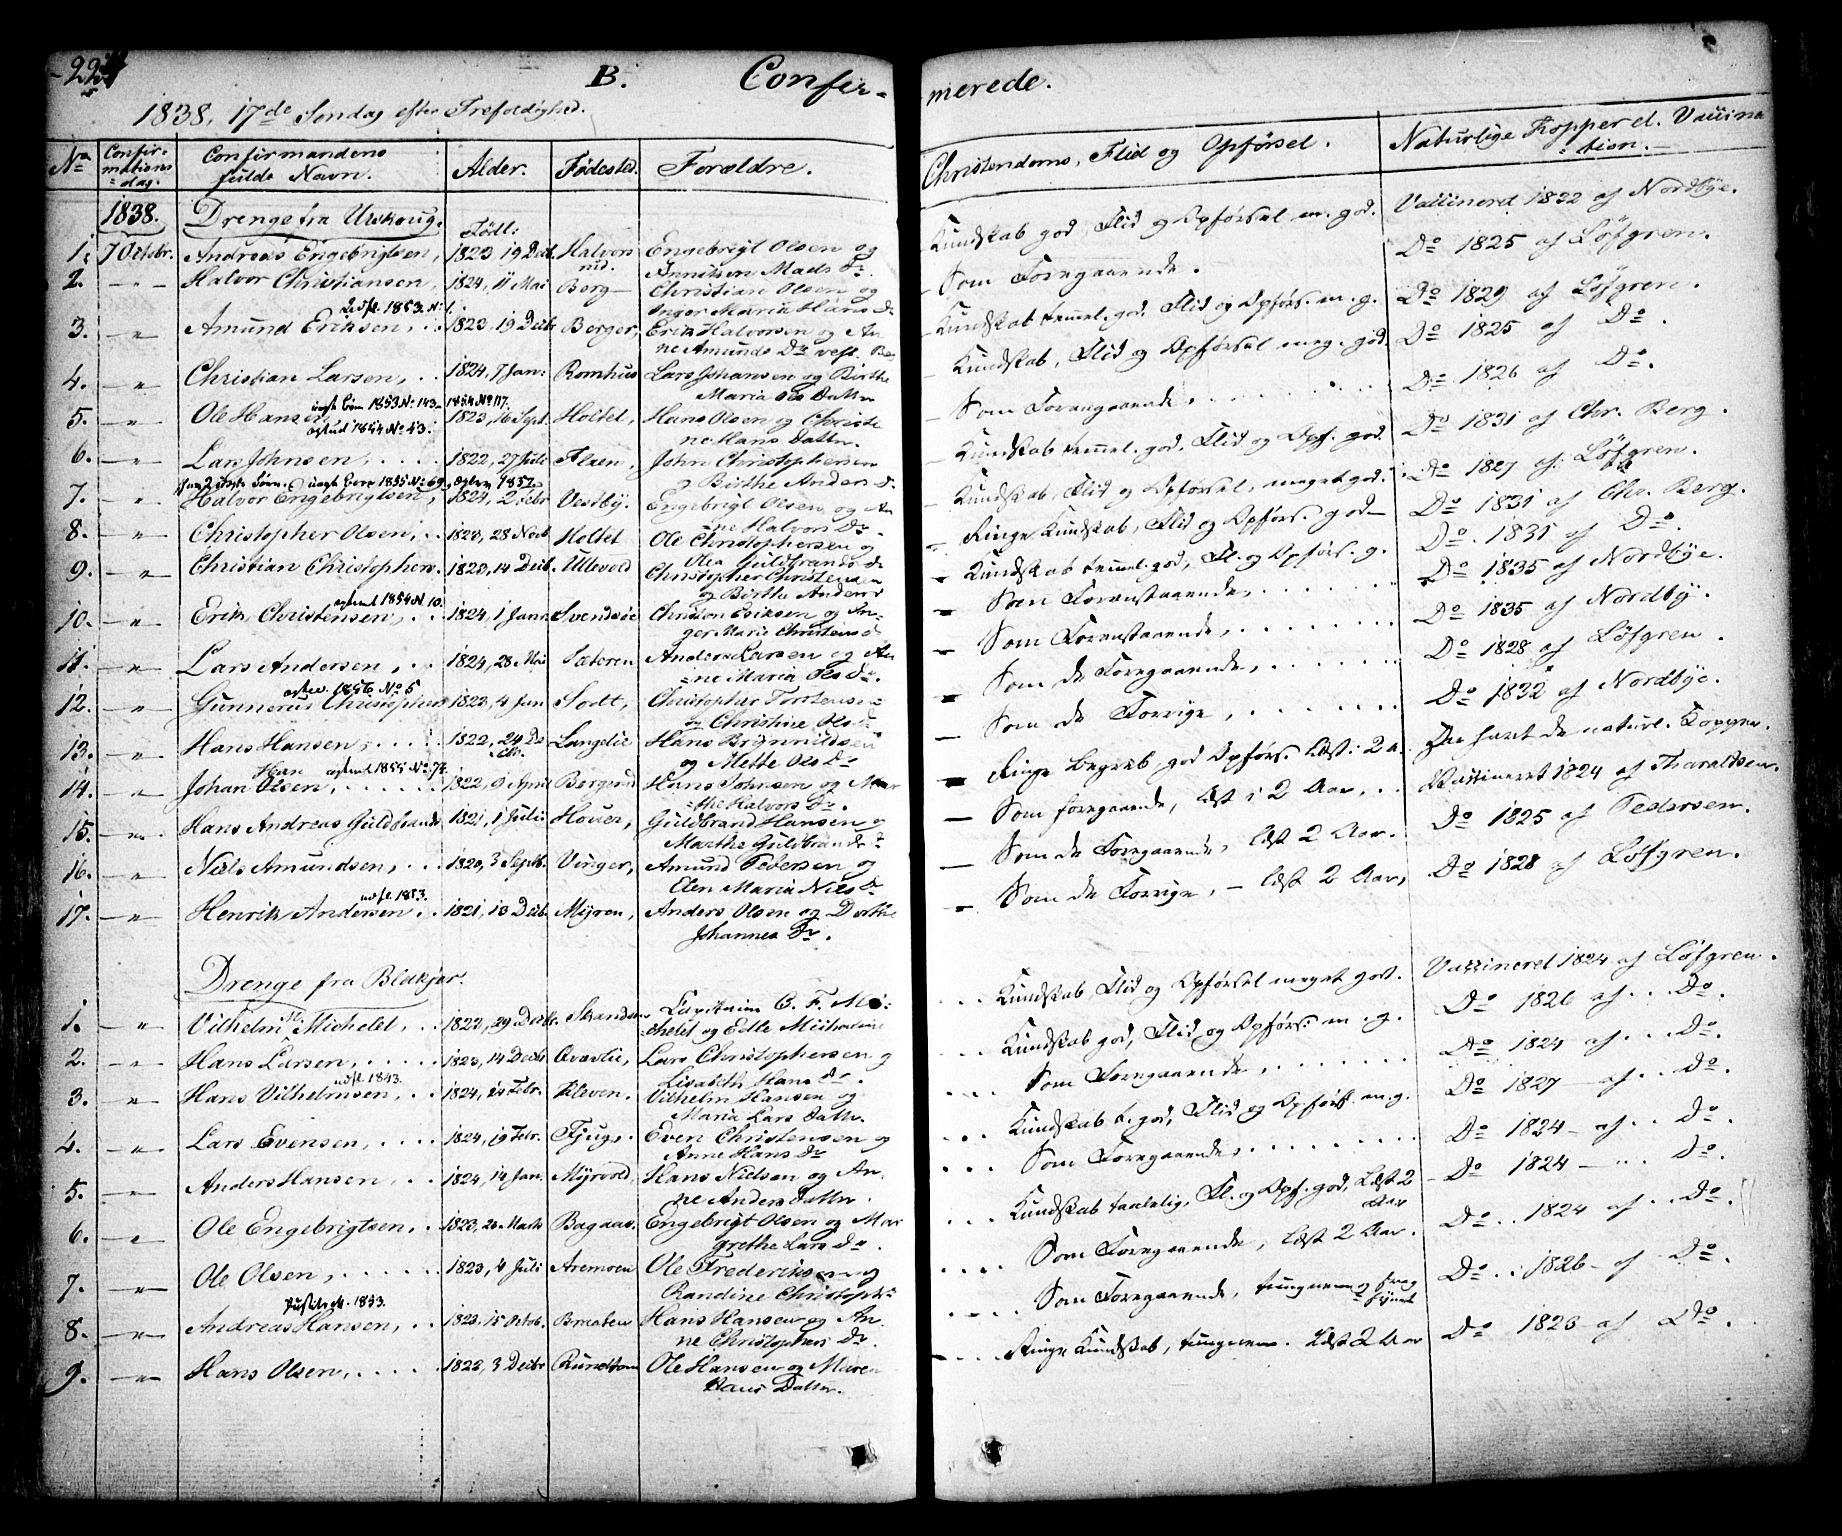 224
B. Confir- merede.
1838, 17de Søndag efter Trefoldighed.
No
Confir-
mations
=dag.
Confirmandens
fulde Navn.
Alder.
Fødested.
Forældre.
Christendoms, Flid og Opførsel.
Naturlige Kopper el. Vaccina
=tion.
1838.
Drenge fra Urskoug.
Født:
1. 7 Octobr. Andreas Engebrigtsen, 1823, 19 Dec. Halvors
rud. Engebrigt Olsen og
Annikken Mads Dr. Kundskab god, Flid og Opførsel m. god. Vaccineret 1822 af Nordbye.
2. -"- Halvor Christiansen, 1824, 11 Mai Berg Christian Olsen og
Inger Maria Hans Dr Som Foregaaende. Do 1825 af Løfgren.
3. -"- Amund Eriksen, 1823, 19 Decbr Berger, Erik Halvorsen og An
ne Amunds Dr Kundskab temmel. god, Flid og Opførs. m. g. Do 1829 af Løfgren.
4. -"- Christian Larsen, 1824, 7 Jan: Romhus Lars Johansen og Birthe
Maria Ols Datter Kundskab, Flid og Opførsel meg. god. Do 1825 af Do.
5. -"- Ole Hansen 1823, 16 Sept. Holtet, Hans Olsen og Christi
ne Hans Datter. Som Foregaaende, Do 1826 af Do.
6. -"- Lars Johnsen, 1822, 27 Juli Flaen, John Christophersen
og Birthe Anders D. Kundskab temmel. god, Flid og Opf. god. Do 1831 af Chr. Berg.
7. -"- Halvor Engebrigtsen, 1824, 2 Febr Vestby. Engebrigt Olsen og An
=ne Halvors Dr Kundskab, Flid og Opførsel, meget god. Do 1827 af Løfgren.
8. -"- Christopher Olsen, 1823, 28 Novb Holtet Ole Christophersen og
Olea Guldbrands Dr Ringe Kundskab, Flid og Opførs. god Do 1831 af Chr. Berg.
9. -"- Christian Christophers. 1823, 14 Decb. Ullevold Christopher Christensen
og Birthe Anders D Kundskab temmel. god, Fl. og Opførs. g. Do. 1831 af Do.
10. -"- Erik Christensen, 1824, 1 Janr. Svendsøe Christen Eriksen og In-
ger Maria Christens d Som Forenstaaende, Do 1835 af Nordbye.
11. -"- Lars Andersen, 1824, 28 Mai Sæteren Anders Larsen og An
=ne Maria Ols Dr. Som Forenstaaende, Do 1835 af Nordby.
12. -"- Gunnerus Christophers 1823, 4 Jun Sodt, Christopher Torstensen
og Christine Ols d Som de Foregaaende, Do 1828 af Løfgren.
13. -"- Hans Hansen, 1822, 24 De
cb. Langelie Hans Brynnildsen
og Mette Ols Dr Som de Forrige, Do 1832 af Nordbye.
14. -"- Johan Olsen, 1822, 9 April Bergerud Hans Johnsen og Mar
=the Halvors Dr. Ringe Begreb, god Opførs. læst i 2 a. Har havt de naturl. Kopper.
15. -"- Hans Andreas Guldbrands 1821, 1 Juli Houer, Guldbrand Hansen og
Marthe Guldbrands Dr Som foregaaende, læst i 2 Aar, Vaccineret 1824 af Tharaldsen.
16. -"- Niels Amundsen, 1820, 3 Septb. Vinger, Amund Pedersen og
Olen Maria Niels Dr Som de Foregaaende, læst 2 Aar. Do 1825 af Pedersen.
17. -"- Henrik Andersen. 1821, 13 Decb. Myren, Anders Olsen og Dorthe
Johannes Dr. Som de Forrige, læst 2 Aar, Do 1828 af Løfgren.
Drenge fra Blakjer.
1. -"- Vilhelm Michelet, 1822, 29 Decbr. Stranden Capitain C. F. Mi-
chelet og Edle Michaline Kundskab, Flid og Opførsel meget god. Vaccineret 1824 af Løfgren.
2. -"- Hans Larsen, 1823, 14 Decbr Ovavlie, Lars Christophersen og
Lisabeth Hans Dr. Kundskab god, Flid og Opførs. m. g. Do 1826 af Do.
3. -"- Hans Vilhelmsen, 1824, 24 Febr. Kleven. Vilhelm Hansen og
Maria Lars Datter. Som Foregaaende, Do 1824 af Do.
4. -"- Lars Evensen, 1824, 19 Febr. Fjug, Even Christensen og
Anne Hans Dr Kundskab t. god, Flid og Opførs. m. g. Do 1827 af Do.
5. -"- Anders Hansen, 1824, 14 Jan. Myrvold, Hans Nielsen og An-
ne Anders Datter. Som Foregaaende, Do 1824 af Do.
6. -"- Ole Engebrigtsen, 1823, 20 Marts Bagaas, Engebrigt Olsen og Mar
grethe Lars Dr. Kundskab taalelig, Fl. og Opf. god, Læst 2
Aar Do 1824 Do.
7. -"- Ole Olsen, 1823, 4 Juli Aremoen Ole Frederiksen og
Randine Christoph Som Foregaaende, læst 2 Aar. Do 1824 af Do.
8. -"- Andreas Hansen, 1823, 15 Octob. Braaten Hans Hansen og An-
ne Christophers Dr. Som Foregaaende, tungnem og svag
synet Do 1826 af Do.
9. -"- Hans Olsen, 1822, 3 Decbr Rundtom Ole Hansen og Maren
Hans Datter. Ringe Kundskab, tungnem. Læst 2 Aar Do 1823 af Do.